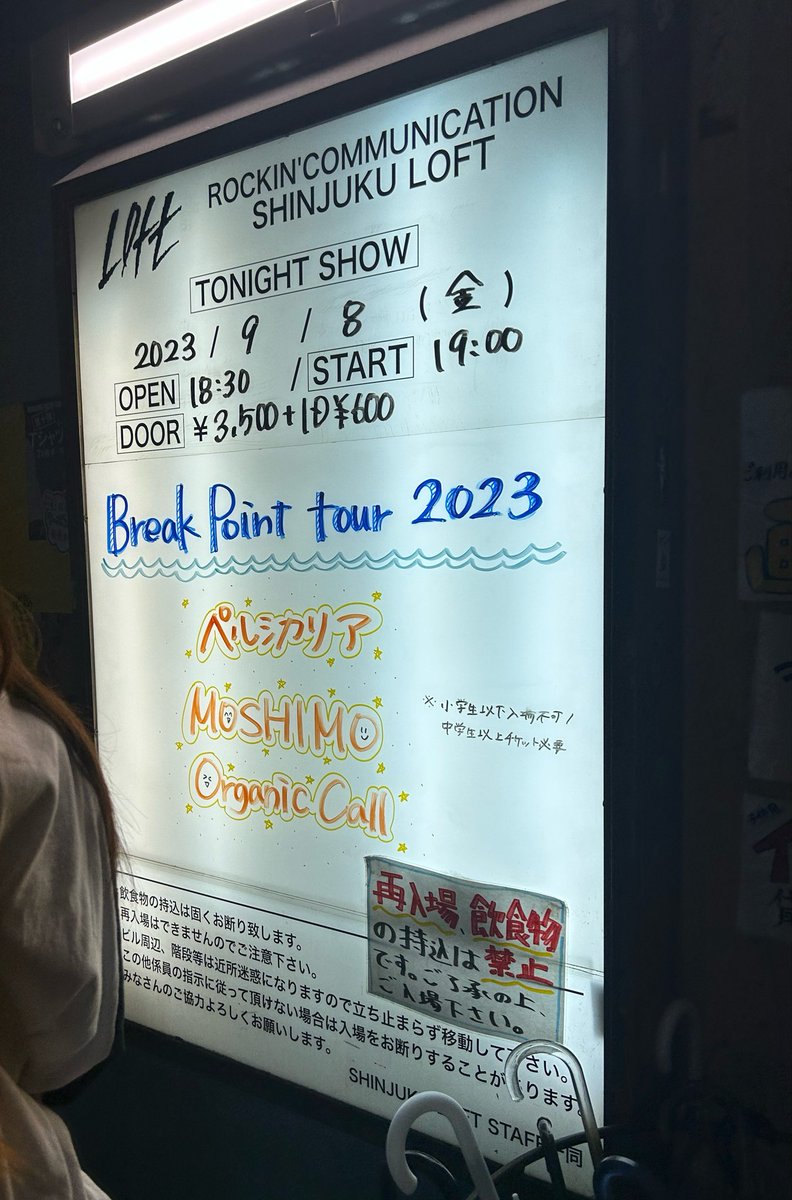 Loft
ROCKIN'COMMUNICATION
SHINJUKU LOFT
TONIGHT SHOW
2023 / 9 / 8 (金)
OPEN 18:30 / START 19:00
DOOR ¥3,500+1D¥600
Break Point tour 2023
ペルシカリア
MOSHIMO
Organic Call
※小学生以下入場不可/
中学生以上チケット必要
再入場、飲食物
の持込は禁止
です。ご了承の上、
ご入場下さい。
飲食物の持込は固くお断り致します。
再入場はできませんのでご注意下さい。
ビル周辺、階段等は近所迷惑になりますので立ち止まらず移動して下さい。
この他係員の指示に従って頂けない場合は入場をお断りすることがあります。
みなさんのご協力よろしくお願いします。
SHINJUKU LOFT STAFF一同
Tシャツ
ご利用